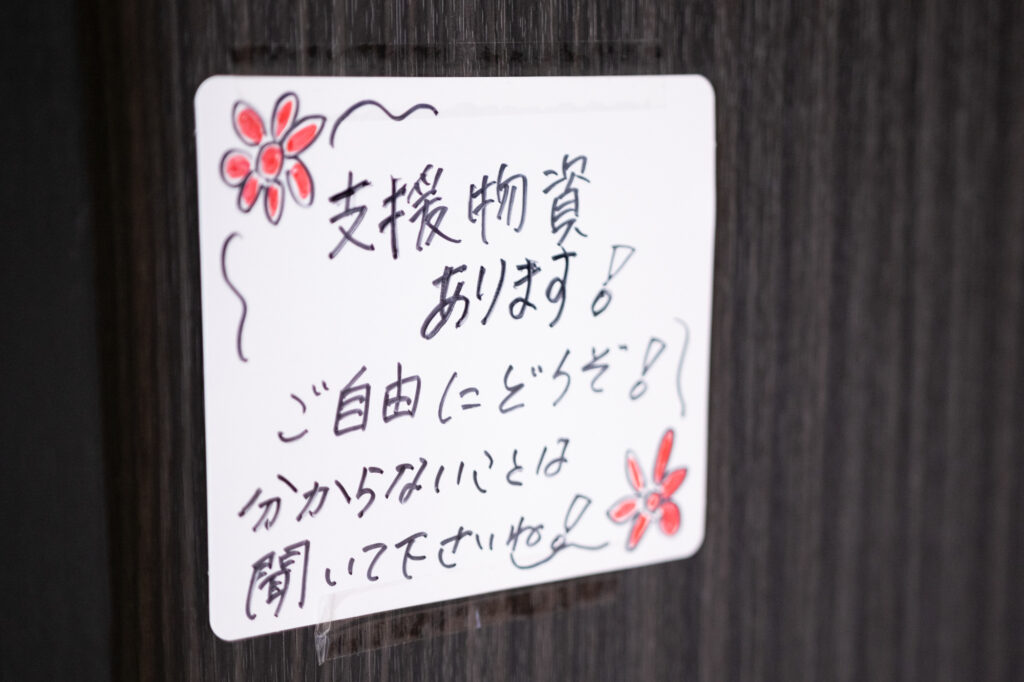 支援物資
あります!
ご自由にどうぞ!
分からないことは
聞いて下さいね!